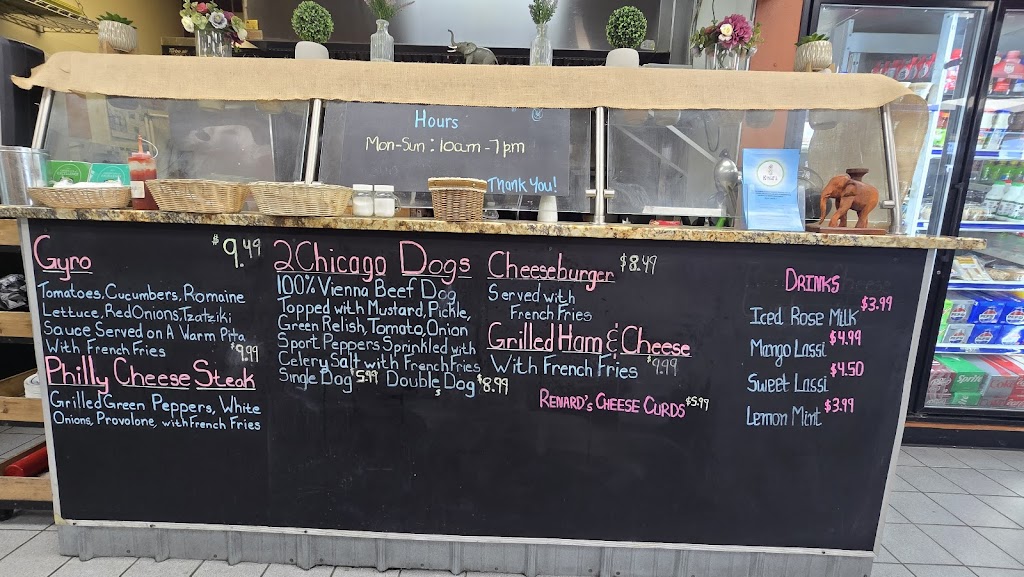 Hours
Mon-Sun : 10am - 7pm
Thank You!
Gyro $9.49
Tomatoes, Cucumbers, Romaine
Lettuce, Red Onions, Tzatziki
Sauce Served on A Warm Pita
With French Fries
$9.99
Philly Cheese Steak
Grilled Green Peppers, White
Onions, Provolone, with French Fries
2 Chicago Dogs
100% Vienna Beef Dog
Topped with Mustard, Pickle,
Green Relish, Tomato, Onion
Sport Peppers Sprinkled with
Celery Salt with French Fries
Single Dog $5.99 Double Dog $8.99
Cheeseburger $8.49
Served with
French Fries
Grilled Ham & Cheese
With French Fries $9.99
Renard's Cheese Curds $5.99
Drinks
Iced Rose Milk $3.99
Mango Lassi $4.99
Sweet Lassi $4.50
Lemon Mint $3.99
Sprite